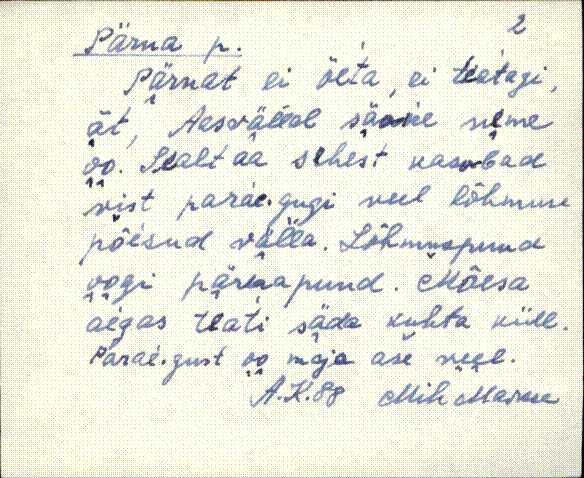 2
Pärna p.
Pärnat ei öẹta, ei teätagi,
ạ̈t, Aasvạ̈llal sạ̈äne nịme
ọọ. Sealt aa sihest kasvabad
vist paraé·gugi veel lõhmuse
põésud vạ̈lla. Lõhmusepuud
ọọgi pạ̈rnapuud. Mõesa
aégas teati sạ̈da kuhta küll.
Paraé·gust ọọ maja ase veel.
A.K. 88 Mih Maruse